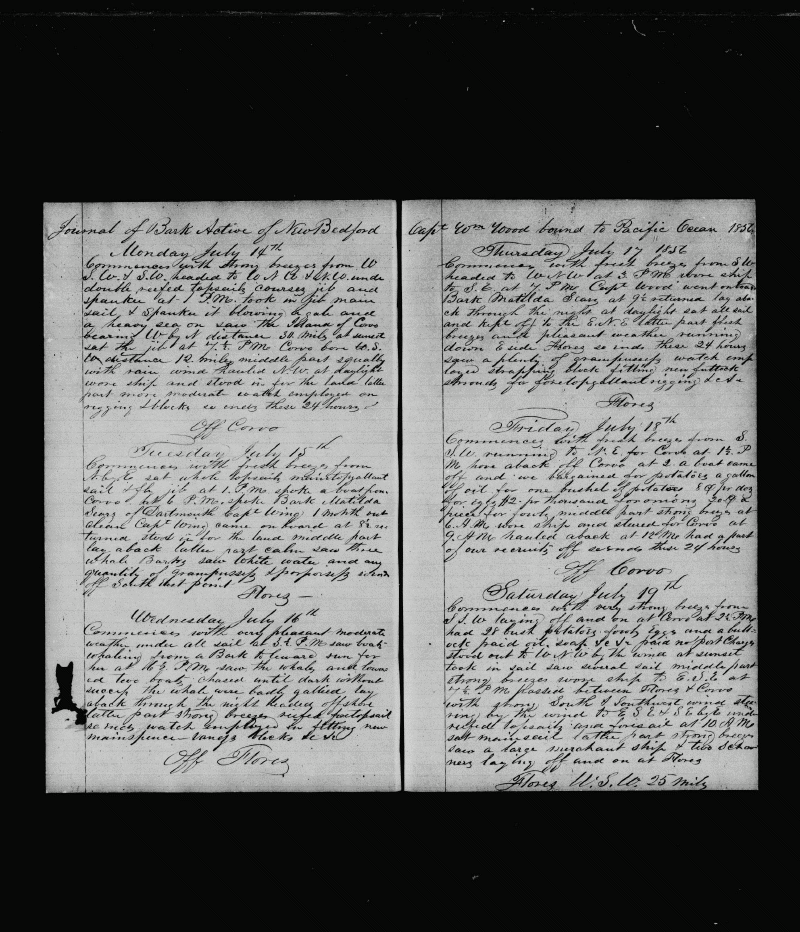 Journal of Bark Active of New Bedford
Monday July 14th
Commences with strong breezes from W
S.W. & S.W. headed to W N W & N.W. under
double reefed topsails courses jib and
spanker at 1 P.M. took in jib main
sail & Spanker it blowing a gale and
a heavy sea on saw the Island of Corvo
bearing W by N distance 30 miles at sunset
sat the jib at 7½ PM Corvo bore W.S.
W. distance 12 miles middle part squally
with rain wind hauled N.W. at daylight
wore ship and stood in for the land latter
part more moderate watch employed on
rigging & blocks so ends these 24 hours
Off Corvo
Tuesday July 15th
Commences with fresh breezes from
N by E sat whole topsails maintopgallant
sail & jib at 1 P.M spoke a boat from
Corvo at 6 P.M. spoke Bark Matilda
Sears of Dartmouth Capt Wing 1 month out
clean Capt Wing came on board at 8 re
turned stood in for the land middle part
lay aback latter part calm saw three
whale Barks saw white water and any
quantity of grampusses & porpoises so ends
off South West point
Flores
Wednesday July 16th
Commences with very pleasant moderate
weather under all sail at 3½ P.M saw boats
whaling from a Bark to leward run for
her at 4½ P.M saw the whales and lower
ed two boats chased until dark without
success the whales were badly gallied lay
aback through the night headed offshore
latter part strong breezes reefed foretopsail
so ends watch employed in fitting new
mainspencer vangs blocks &c &c
Off Flores
Capt Wm Wood bound to Pacific Ocean 1856
Thursday July 17 1856
Commences with fresh breezes from S.W
headed to W N W at 3 P.M. wore ship
to S.E. at 7 P.M. Capt Wood went on board
Bark Matilda Sears at 9 returned lay aba
ck through the night at daylight sat all sail
and kept off to the E.N.E latter part fresh
breezes and pleasant weather running
down E side Flores so ends these 24 hours
saw a plenty of grampusses watch emp
loyed strapping blocks fitting new futtock
shrouds for foretopgallant rigging &c &c
Flores
Friday July 18th
Commences with fresh breezes from S.
S.W. running to N.E. for Corvo at 1½ P
M hove aback off Corvo at 2 a boat came
off and we bargained for potatoes a gallon
of oil for one bushel of potatoes 8 ¢ pr doz
for eggs $2. pr thousand for onions
piece for fowls middle part strong breezes at
6 A.M wore ship and steered for Corvo at
9 A.M hauled aback at 12 M. had a part
of our recruits off so ends these 24 hours
Off Corvo
Saturday July 19th
Commences with very strong breezes from
S.W laying off and on at Corvo at 2½ P.M.
had 28 bush potatoes fowls eggs and a bull
ock paid oil, soap &c &c paid no port Charges
stood out to W N W by the wind at sunset
took in sail saw several sail middle part
strong breezes wore ship to E.S.E at
7½ P.M passed between Flores & Corvo
with strong South & Southwest wind stee
ring by the wind to E S E & S E by E under
reefed topsails and foresail at 10 A M
sat mainsail latter part strong breezes
saw a large merchant ship & two Schoo
ners laying off and on at Flores
Flores W.S.W. 25 miles